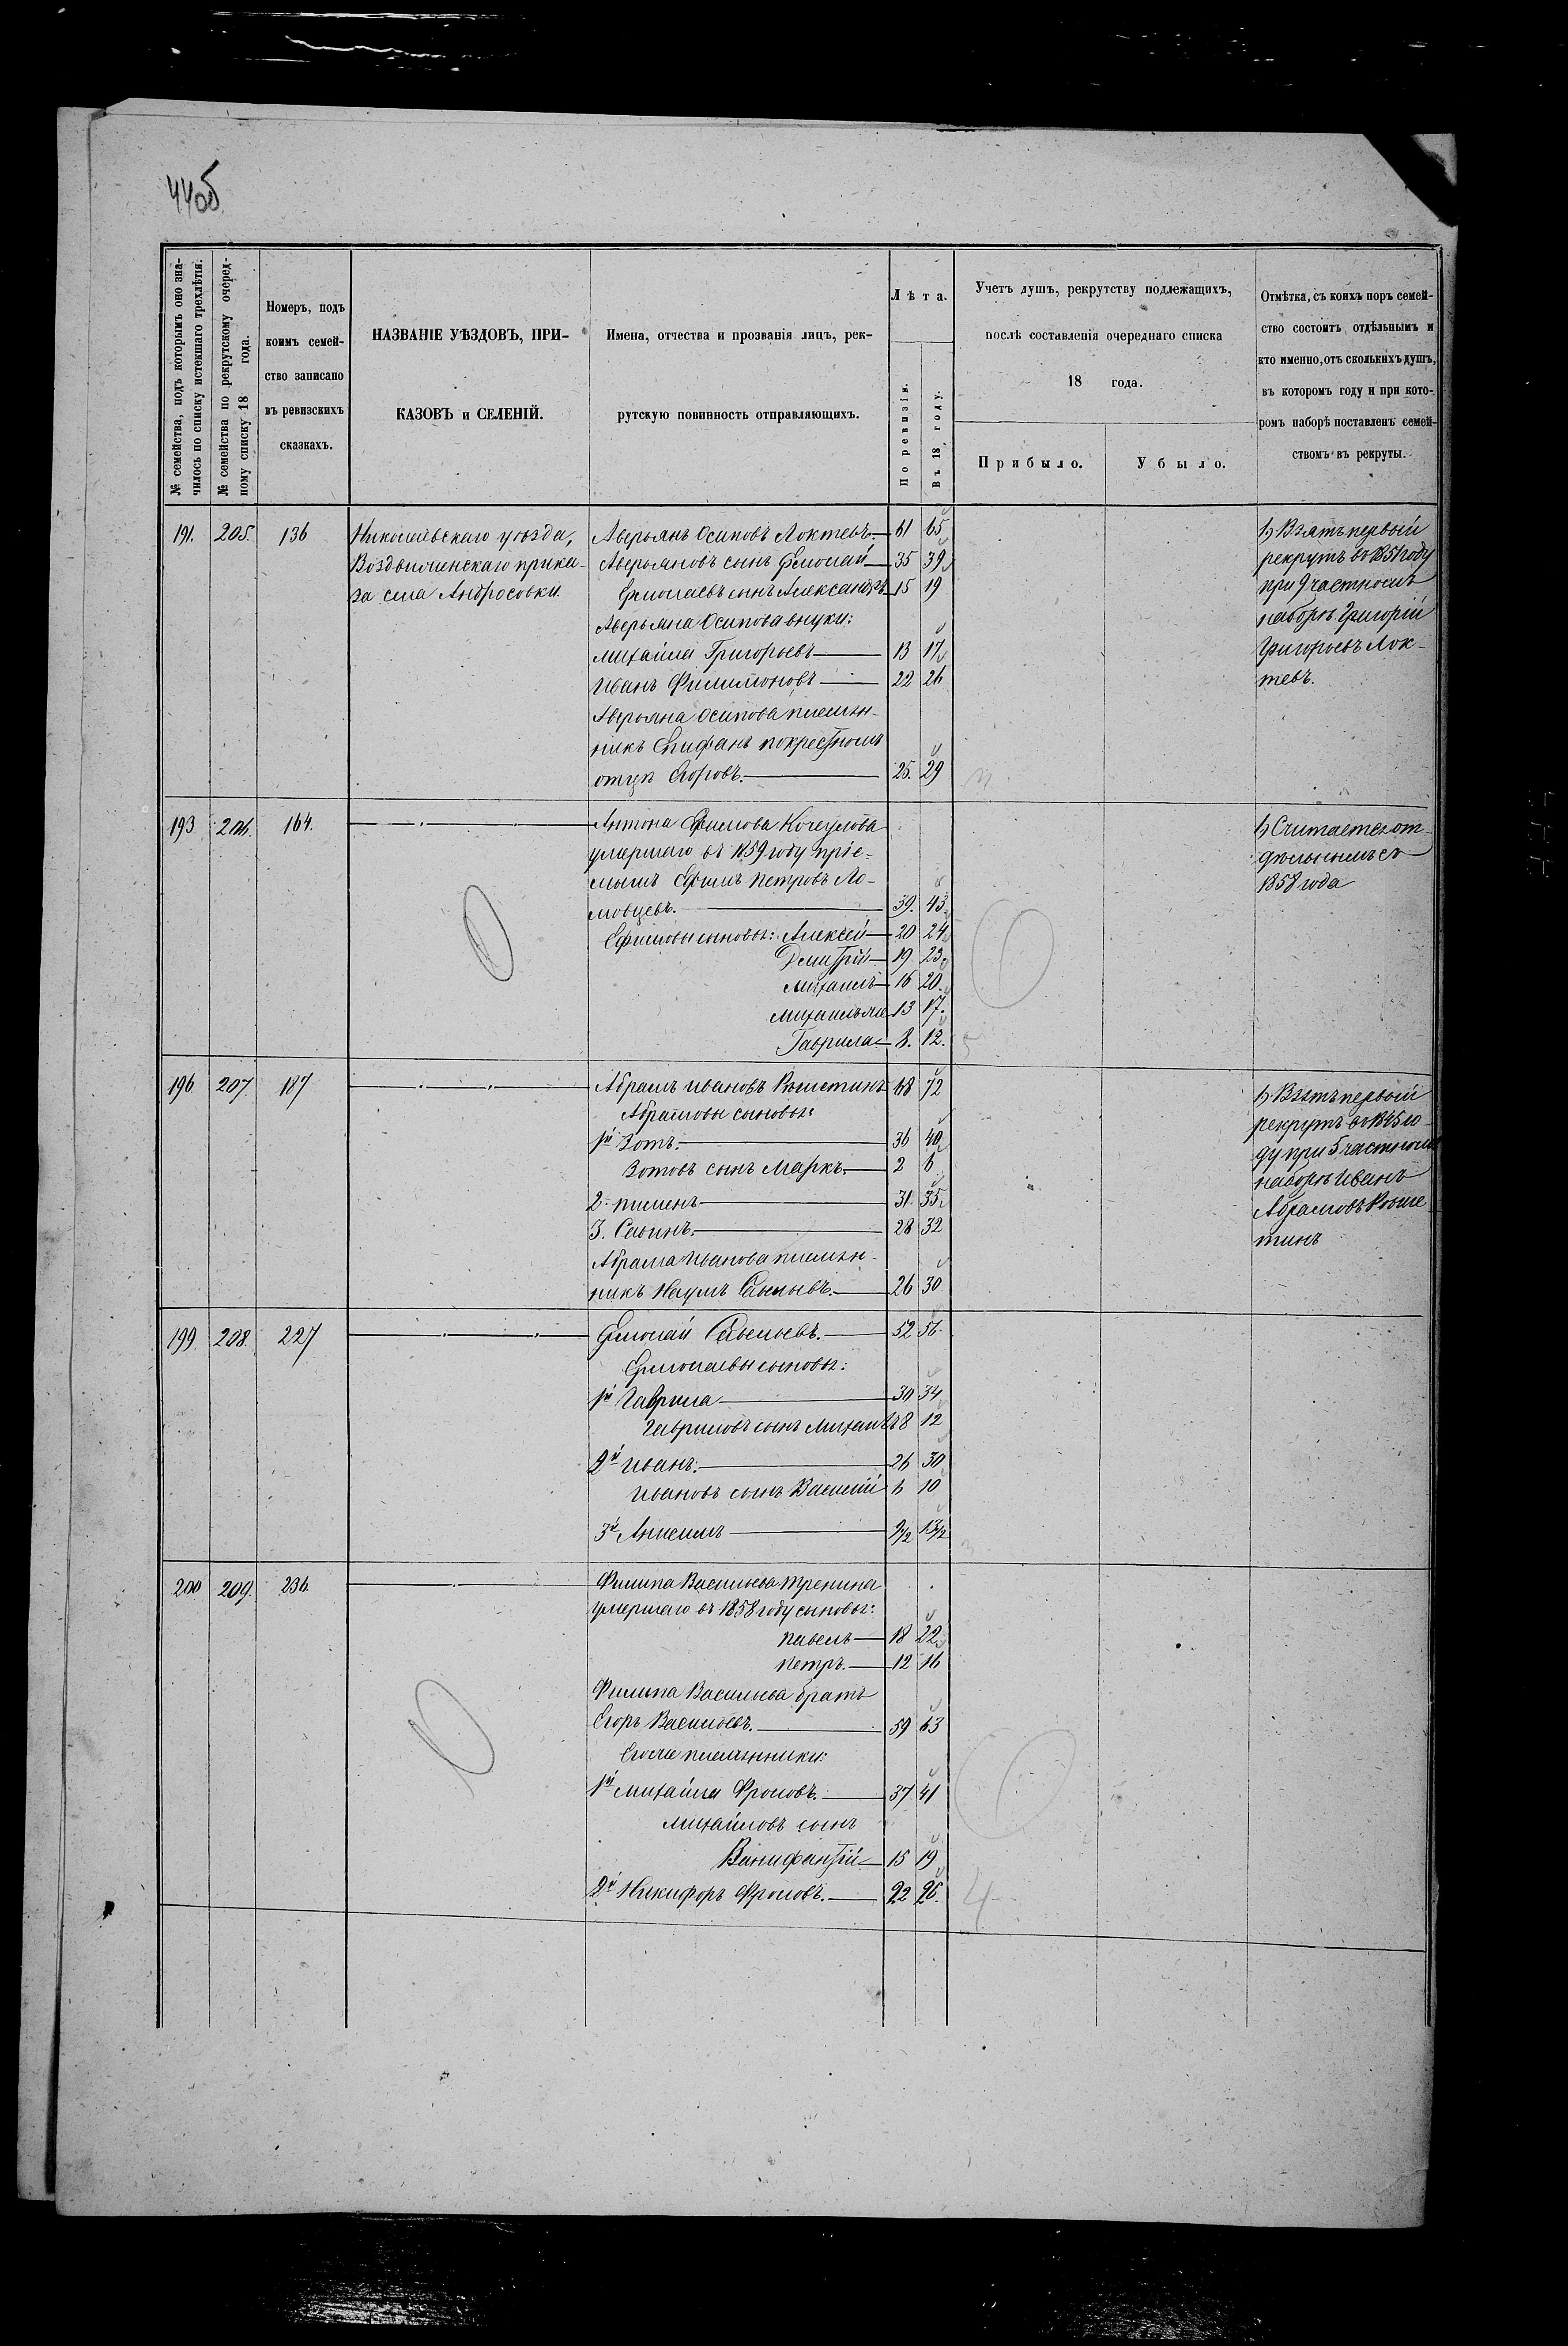 44об
№ семейства, подъ которымъ оно зна-
чилось по списку истекшаго трехлѣтія.
№ семейства по рекрутскому очеред-
ному списку 18 года.
Номеръ, подъ
коимъ семей-
ство записано
въ ревизскихъ
сказкахъ.
НАЗВАНІЕ УѢЗДОВЪ, ПРИ-
КАЗОВЪ и СЕЛЕНІЙ.
Имена, отчества и прозванія лицъ, рек-
рутскую повинность отправляющихъ.
Лѣта.
По ревизіи.
Въ 18 году.
Учетъ душъ, рекрутству подлежащихъ,
послѣ составленія очереднаго списка
18 года.
Прибыло.
Убыло.
Отмѣтка, съ коихъ поръ семей-
ство состоитъ отдѣльнымъ и
кто именно, отъ сколькихъ душъ,
въ которомъ году и при кото-
ромъ наборѣ поставленъ семей-
ствомъ въ рекруты.
191. 205. 136
Николаевскаго уѣзда,
Воздвиженскаго прика-
за села Андросовки.
Аверьянъ Осиповъ Локтевъ 61 65
Аверьяновъ сынъ Ермолай 35 39
Ермолаевъ сынъ Александръ 15 19
Аверьяна Осипова внуки:
Михайла Григорьевъ 13 17
Иванъ Филимоновъ 22 26
Аверьяна Осипова племян-
никъ Епифанъ по крестномъ
отцѣ Егоровъ. 25. 29
1) Взятъ первый
рекрутъ въ 1851 году
при 9 частномъ
наборѣ Григорій
Григорьевъ Лок-
тевъ.
193 206. 164.
Антона Ефимова
умершаго въ 1859 году пріе-
мышъ Ефимъ Петровъ Ло-
мовцевъ. 39. 43
Ефимовы сыновья: Алексей 20 24
Дмитрій 19 23
Михаилъ 16 20
Михаилъ 13 17.
Гаврила 8. 12.
5
1) Считается от-
дѣльнымъ съ
1858 года
196 207. 187
Абрамъ Ивановъ 68 72
Абрамовы сыновья:
1й Зотъ. 36 40
Зотовъ сынъ Маркъ. 2 6
2. Пименъ 31. 35
3. Савинъ. 28 32
Абрама Иванова племян-
никъ Наумъ Савельевъ. 26 30
1) Взятъ первый
рекрутъ въ 1845 го-
ду при 5 частномъ
наборѣ Иванъ
Абрамовъ
199. 208. 227
Ермолай Савельевъ. 52 56.
Ермолаевы сыновья:
1й Гаврила 30 34
Гавриловъ сынъ Михаилъ 8 12
2й Иванъ. 26 30
Ивановъ сынъ Василій 6 10
3й Анисимъ 9/2 13/2
200 209. 236.
Филипа Васильева Тренина
умершаго въ 1858 году сыновья:
Павелъ 18 22
Петръ. 12 16
Филипа Васильева братъ
Егоръ Васильевъ. 59 63
Егора племянники:
1й Михайла Фроловъ. 37 41
Михайловъ сынъ
Вонифантій 15 19
2й Никифоръ Фроловъ. 22 26.
4